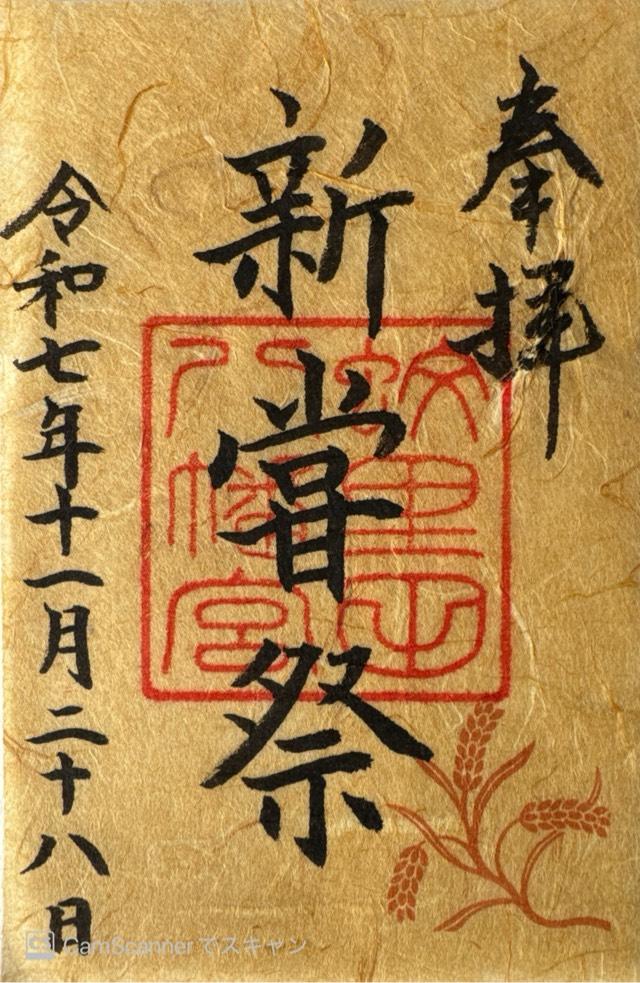 奉拝
新嘗祭
八幡宮
令和七年十一月二十八日
CS CamScanner でスキャン